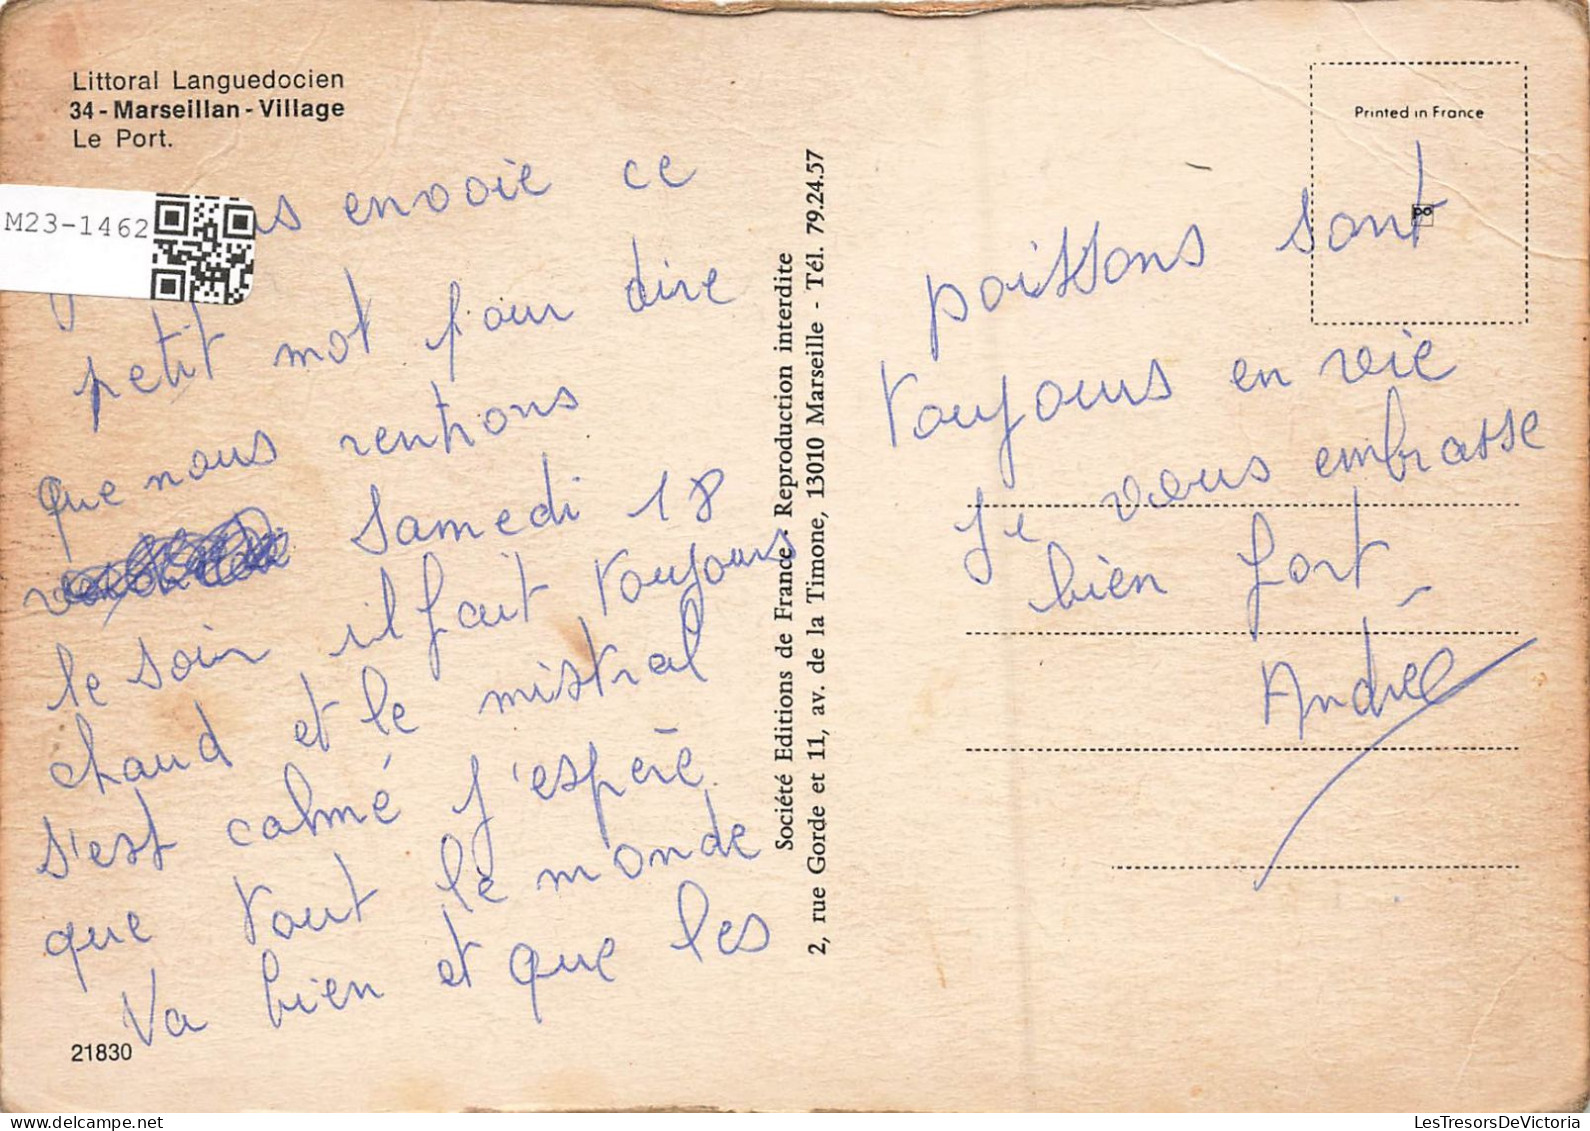 Littoral Languedocien
34 - Marseillan - Village
Le Port.
M23-1462
envoie ce
petit mot pour dire
que nous rentrons
samedi 18
le soir il fait toujours
chaud et le mistral
s'est calmé j'espère
que tout le monde
Va bien et que les
21830
Société Editions de France - Reproduction interdite
2, rue Gorde et 11, av. de la Timone, 13010 Marseille - Tél. 79.24.57
Printed in France
poissons sont
toujours en vie
je vous embrasse
bien fort
Andrée
LesTresorsDeVictoria